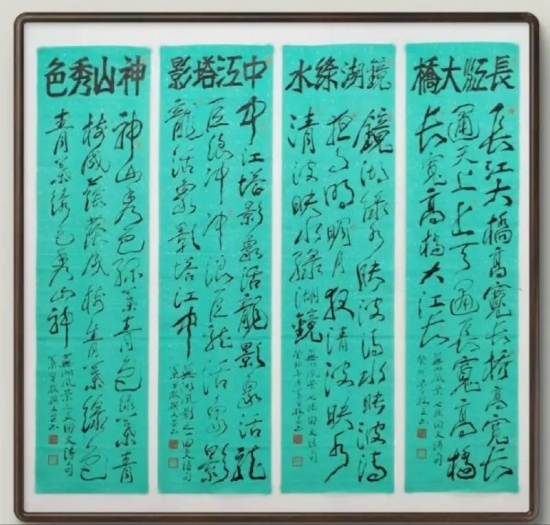 長江大橋
長江大橋高寬長橋高寬長
通天上上天通長寬高橋
長寬高橋大江長
鏡湖綠水
鏡湖綠水映波清水映波清
夜月明明月夜清波映水
清波映水綠湖鏡
中江塔影
中江塔影象活龍影象活龍
巨浪冲冲浪巨龍活象影
龍活象影塔江中
神山秀色
神山秀色綠葉青色綠葉青
樹成蔭蔭成樹青葉綠色
青葉綠色秀山神